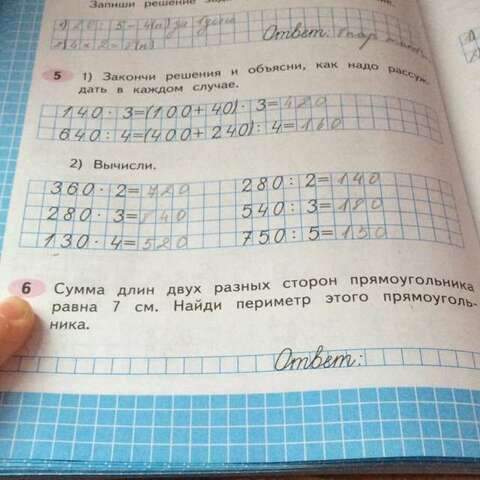 Запиши решение
1) 20 : 5 = 4(п) за 1 день
2) 4 · 2 =
Ответ:
5 1) Закончи решения и объясни, как надо рассуж-
дать в каждом случае.
140 · 3=(100+40) · 3=420
640 : 4=(400+240) : 4=160
2) Вычисли.
360 · 2=720 280 : 2=140
280 · 3=840 540 : 3=180
130 · 4=520 750 : 5=150
6 Сумма длин двух разных сторон прямоугольника
равна 7 см. Найди периметр этого прямоуголь-
ника.
Ответ: